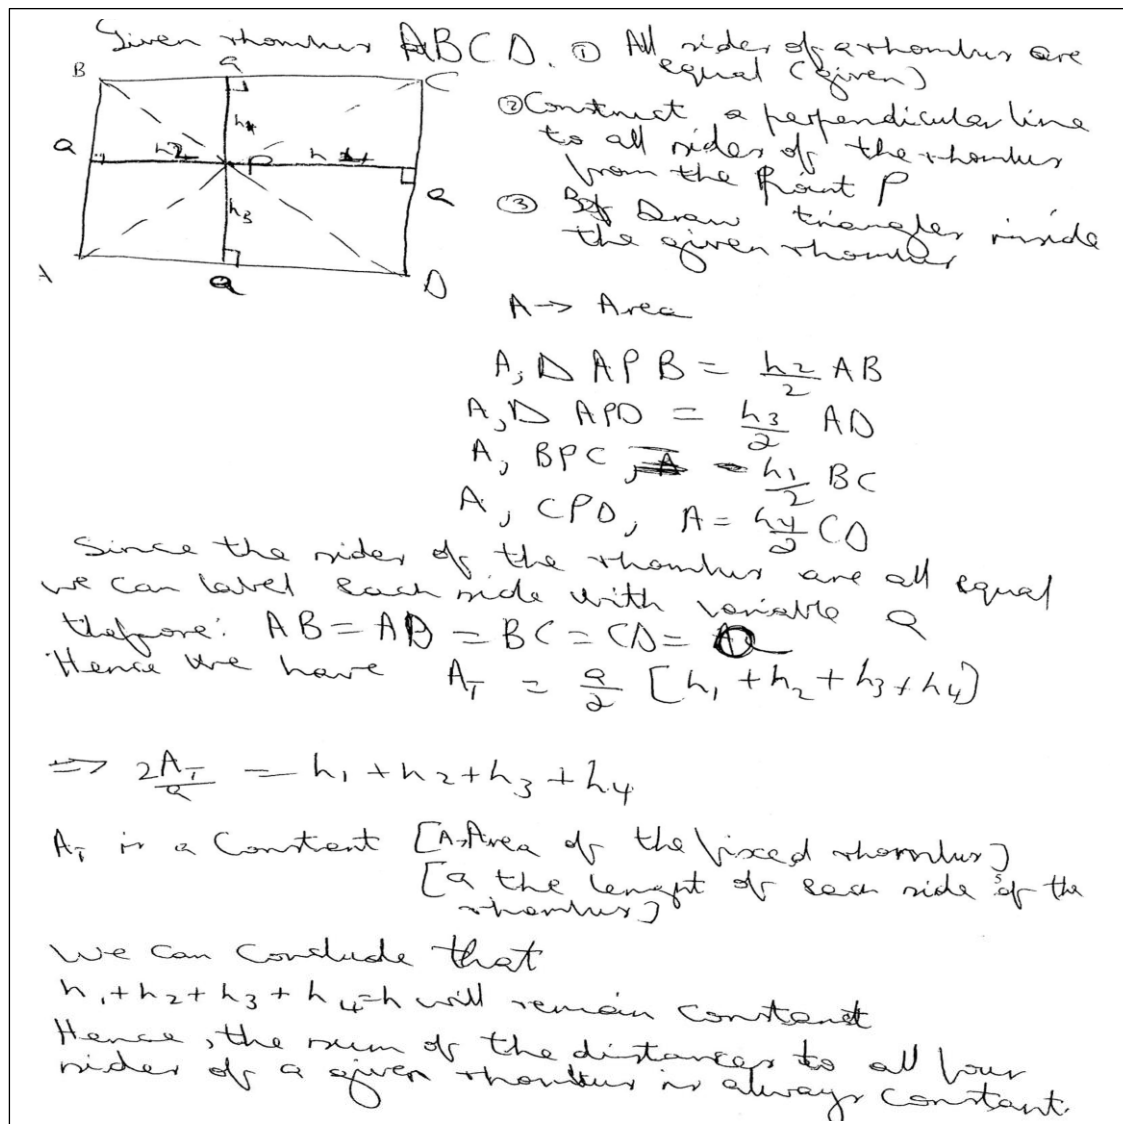 Given rhombus ABCD. ① All sides of a rhombus are
equal (given)
② Construct a perpendicular line
to all sides of the rhombus
from the point P
③ Draw triangles inside
the given rhombus
B
a
C
h
a
h2
P
h
a
h3
A
a
D
A → Area
A, Δ APB = h2/2 AB
A, Δ APD = h3/2 AD
A, BPC, = h1/2 BC
A, CPD, A = h4/2 CD
Since the sides of the rhombus are all equal
we can label each side with variable a
thefore: AB = AD = BC = CD = a
Hence we have A_T = a/2 [h1 + h2 + h3 + h4]
=> 2A_T/a = h1 + h2 + h3 + h4
A_T is a Constant [A, Area of the fixed rhombus]
[a the lenght of each side of the
rhombus]
We can Conclude that
h1 + h2 + h3 + h4 = h will remain constant
Hence, the sum of the distances to all four
sides of a given rhombus is always constant.